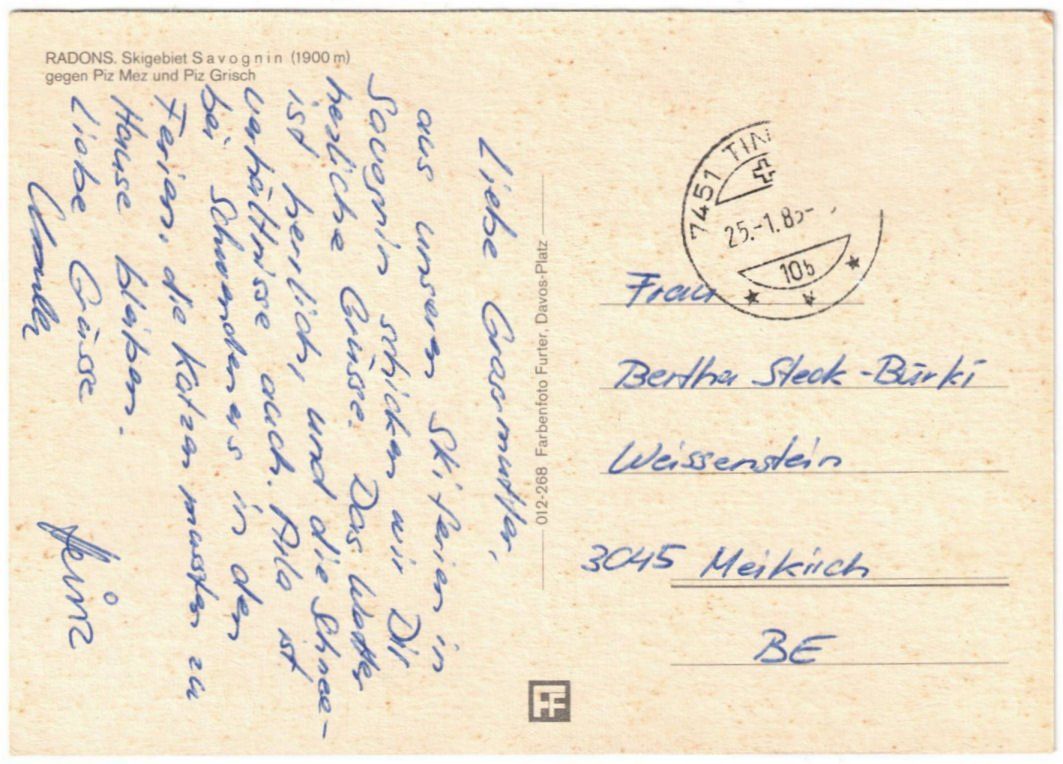 RADONS. Skigebiet Savognin (1900 m)
gegen Piz Mez und Piz Grisch
Liebe Grossmutter,
aus unseren Skiferien in
Savognin schicken wir Dir
herzliche Grüsse. Das Wetter
ist herrlich, und die Schnee-
verhältnisse auch. Ahla ist
bei Schwendeners in den
Ferien, die Katzen mussten zu
Hause bleiben.
Liebe Grüsse
Heinz
012-268 Farbenfoto Furter, Davos-Platz
FF
7451 TIN
25.-1.85-
105
Frau
Bertha Steck-Bürki
Weissenstein
3045 Meikirch
BE